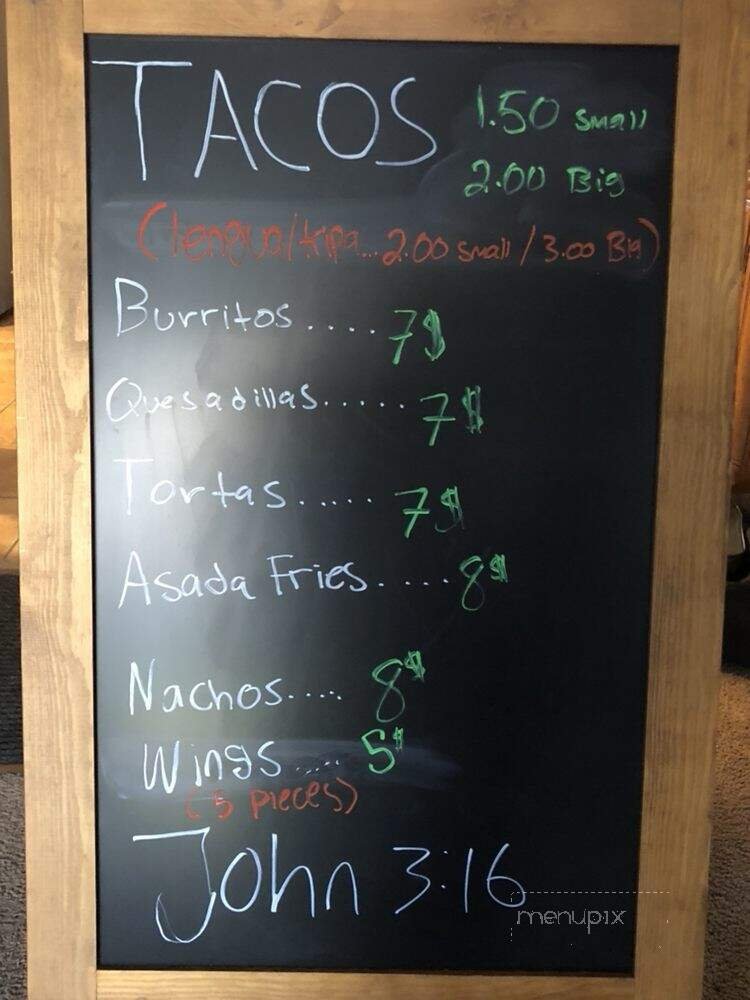 TACOS 1.50 small
2.00 Big
(lengua/tripa... 2.00 small / 3.00 Big)
Burritos .... 7$
Quesadillas ...... 7$
Tortas ..... 7$
Asada Fries ..... 8$
Nachos .... 8$
Wings ..... 5$
(5 pieces)
John 3:16
menupix